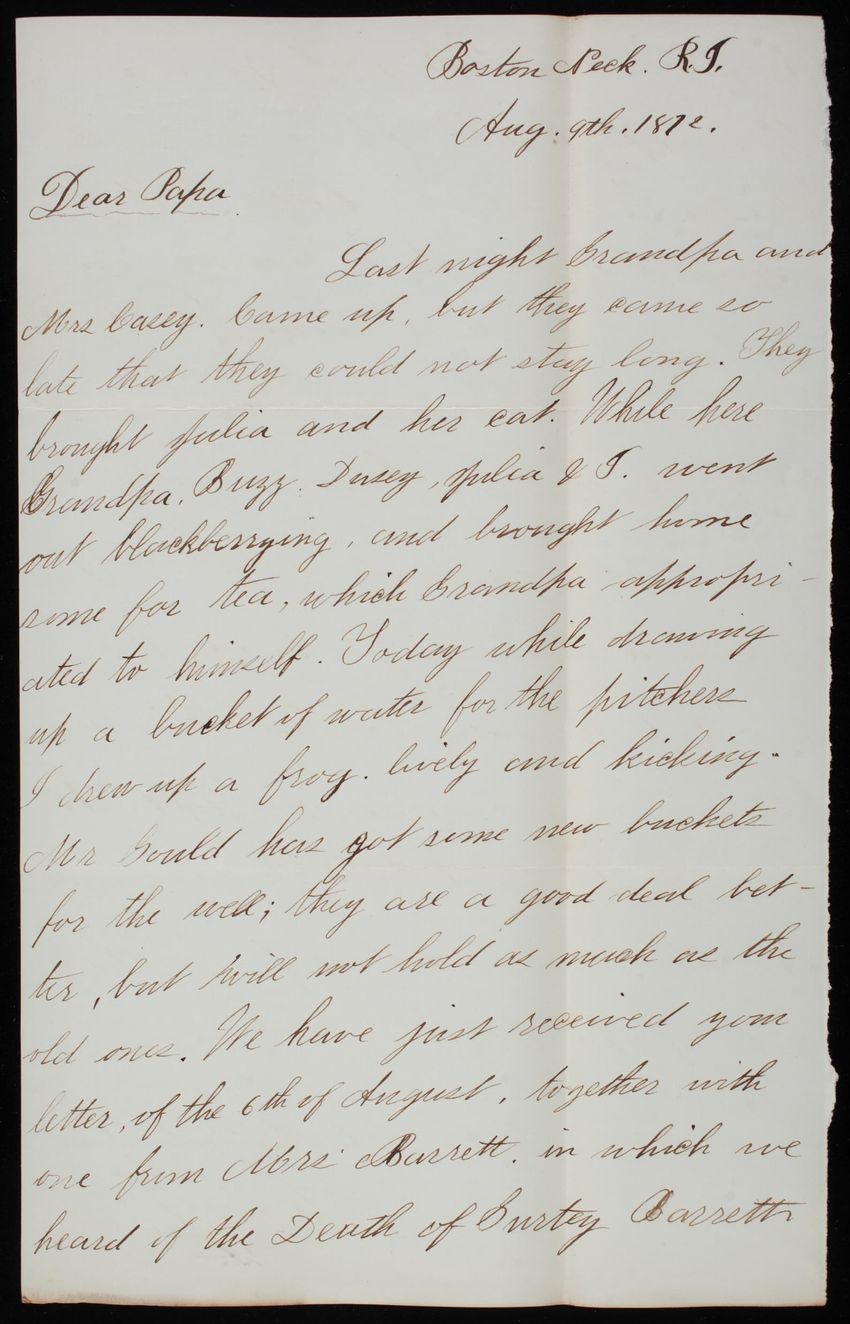 Boston Neck. R.I.
Aug. 9th. 1872.
Dear Papa
Last night Grandpa and
Mrs Casey. Came up, but they came so
late that they could not stay long. They
brought Julia and her cat. While here
Grandpa, Buzz. Dusey, Julia & I. went
out blackberrying, and brought home
some for tea, which Grandpa appropri-
ated to himself. Today while drawing
up a bucket of water for the pitchers
I drew up a frog. lively and kicking.
Mr Gould has got some new buckets
for the well; they are a good deal bet-
ter, but will not hold as much as the
old ones. We have just received your
letter, of the 6th of August, together with
one from Mrs Barrett. in which we
heard of the Death of Barrett